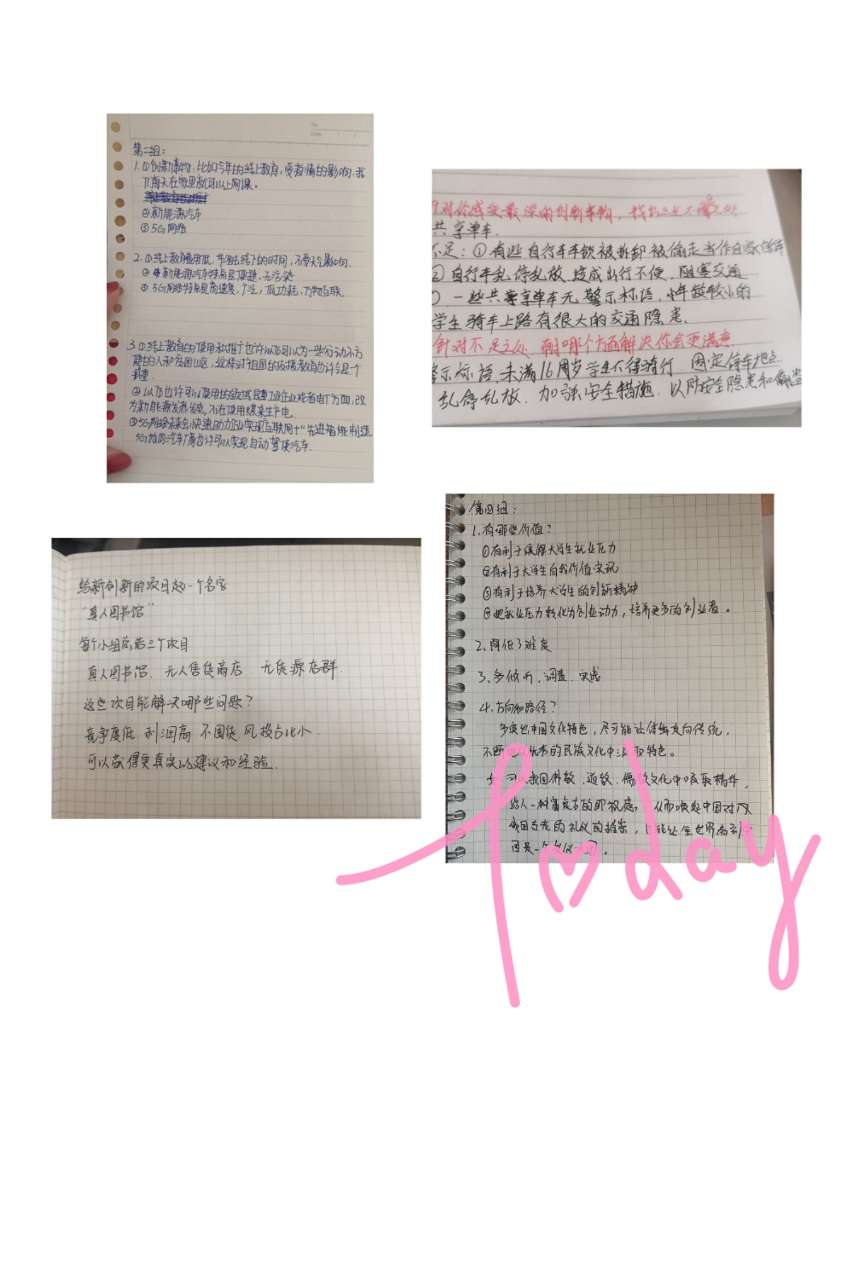 第二组:
1.①创新事物,比如今年的线上教育,受疫情的影响,我
们每天在家里就可以上网课。
②新能源汽车
③5G网络
2.①线上教育 节省线下的时间,不受天气影响.
② 新能源汽车特点是便捷、无污染
③ 5G网络特点是高速度,广泛,低功耗,万物互联
3.①线上教育的使用和推广也许以后可以为一些行动不方
便的人和贫困山区,这样对于祖国的 教育也许会是个
②以后也许可以 工业企业或者电厂方面,改
为新能源发 ,不在使用煤来生产电.
③5G网络 会快速助力企业实现互联网+"先进智能制造
5G 汽车厂商也许可以实现自动驾驶汽车.
对你感受最深的创新事物,找出三处不
共享单车.
不足:①有些自行车车锁被拆卸被偷走当作自家
②自行车乱停乱放,造成出行不便,阻塞交通
一些共享单车无警示标语,年龄较小的
学生骑车上路有很大的交通隐患.
针对不足之处,耐哪个方面解决你会更满意
警示标语,未满16周岁学生不得骑行 固定停车地点
乱停乱放,加强安全措施,以防安全隐患和偷盗
给新创新的项目起一个名字
"真人图书馆"
每个小组 三个项目
真人图书馆、无人售货商店 无货源店群
这些项目能解决哪些问题?
竞争度低 利润高 不囤货 风投占比小
可以获得更真实的建议和经验.
第四组:
1.有哪些价值?
①有利于缓解大学生就业压力
②有利于大学生自我价值实现
③有利于培养大学生的创新精神
④把就业压力转化为创业动力,培养更多的创业者。
2.降低了难度
3.多倾听、调查、实践
4.方向和路径?
多突出中国文化特色,尽可能让传统走向传统,
不 优秀的民族文化中 特色。
可 我国佛教、道教、儒 文化中吸取精华,
给人一种富有古的 感, 从而唤起中国对
我国古老的礼仪的探索, 让全世界看到
国是一个 国。
Today